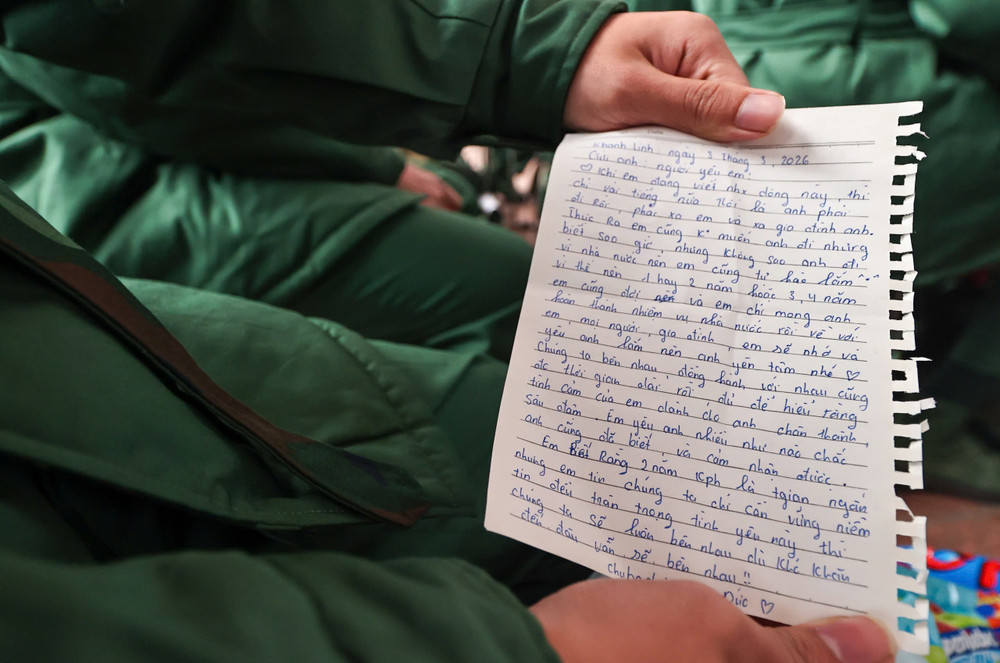 Khánh Linh ngày 3 Tháng 3, 2026
Cửu anh: người yêu em!
♡ Khi em đang viết nhx dòng này, thì
chỉ vài tiếng nữa thôi là anh phải
đi rồi, phải xa em và xa gia đình anh.
Thực ra em cũng k muốn anh đi nhưng
biết sao giờ, nhưng không sao anh đi
vì nhà nước nên em cũng tự hào lắm
vì thế nên 1 hay 2 năm hoặc 3, 4 năm
em cũng đợi và em chỉ mong anh
hoàn thành nhiệm vụ nhà nước rồi về với
em, mọi người, gia đình, em sẽ nhớ và
yêu anh lắm nên anh yên tâm nhé ♡
Chúng ta bên nhau, đồng hành với nhau cũng
đc thời gian dài rồi, đủ để hiểu rằng
tình cảm của em dành cho anh chân thành,
sâu đậm. Em yêu anh nhiều như nào chắc
anh cũng đã biết và cảm nhận được.
Em biết Rằng 2 năm kph là tgian ngắn
nhưng em tin chúng ta chỉ cần vững niềm
tin đều toàn trọng tình yêu này thì
chúng ta sẽ luôn bên nhau dù khó khăn
đến đâu vẫn sẽ bên nhau!!
Đức ♡